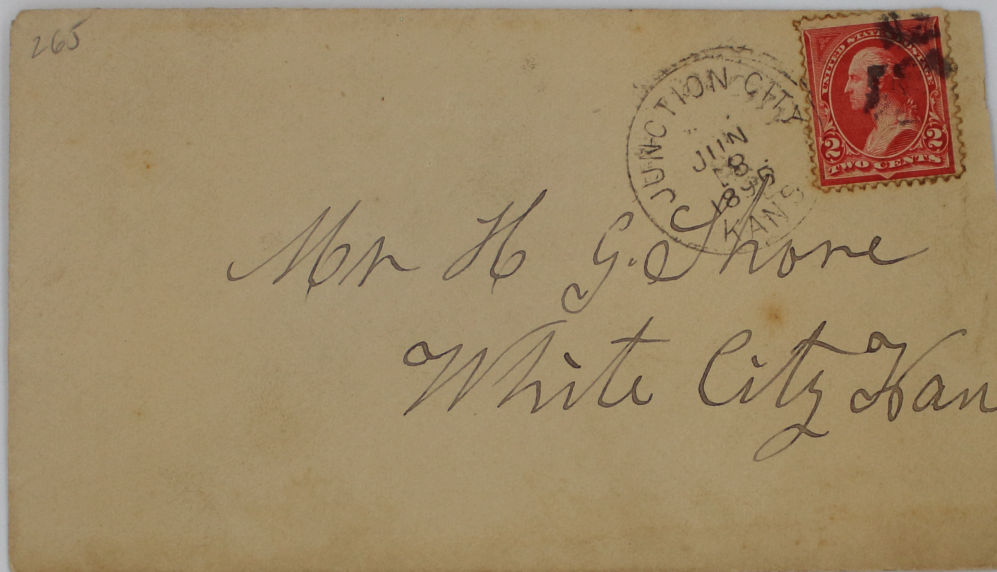 265
JUNCTION CITY
JUN
8
1895
KANS
UNITED STATES POSTAGE
2 2
TWO CENTS
Mr H G. Shore
White City Kan